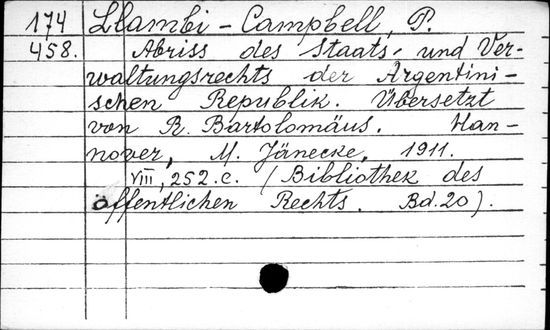 174 Llambi - Campbell, P.
458. Abriss des Staats- und Ver-
waltungsrechts der Argentini-
schen Republik. Übersetzt
von R. Bartolomäus. Han-
nover, M. Jänecke, 1911.
VIII, 252 c. (Bibliothek des
öffentlichen Rechts. Bd. 20).